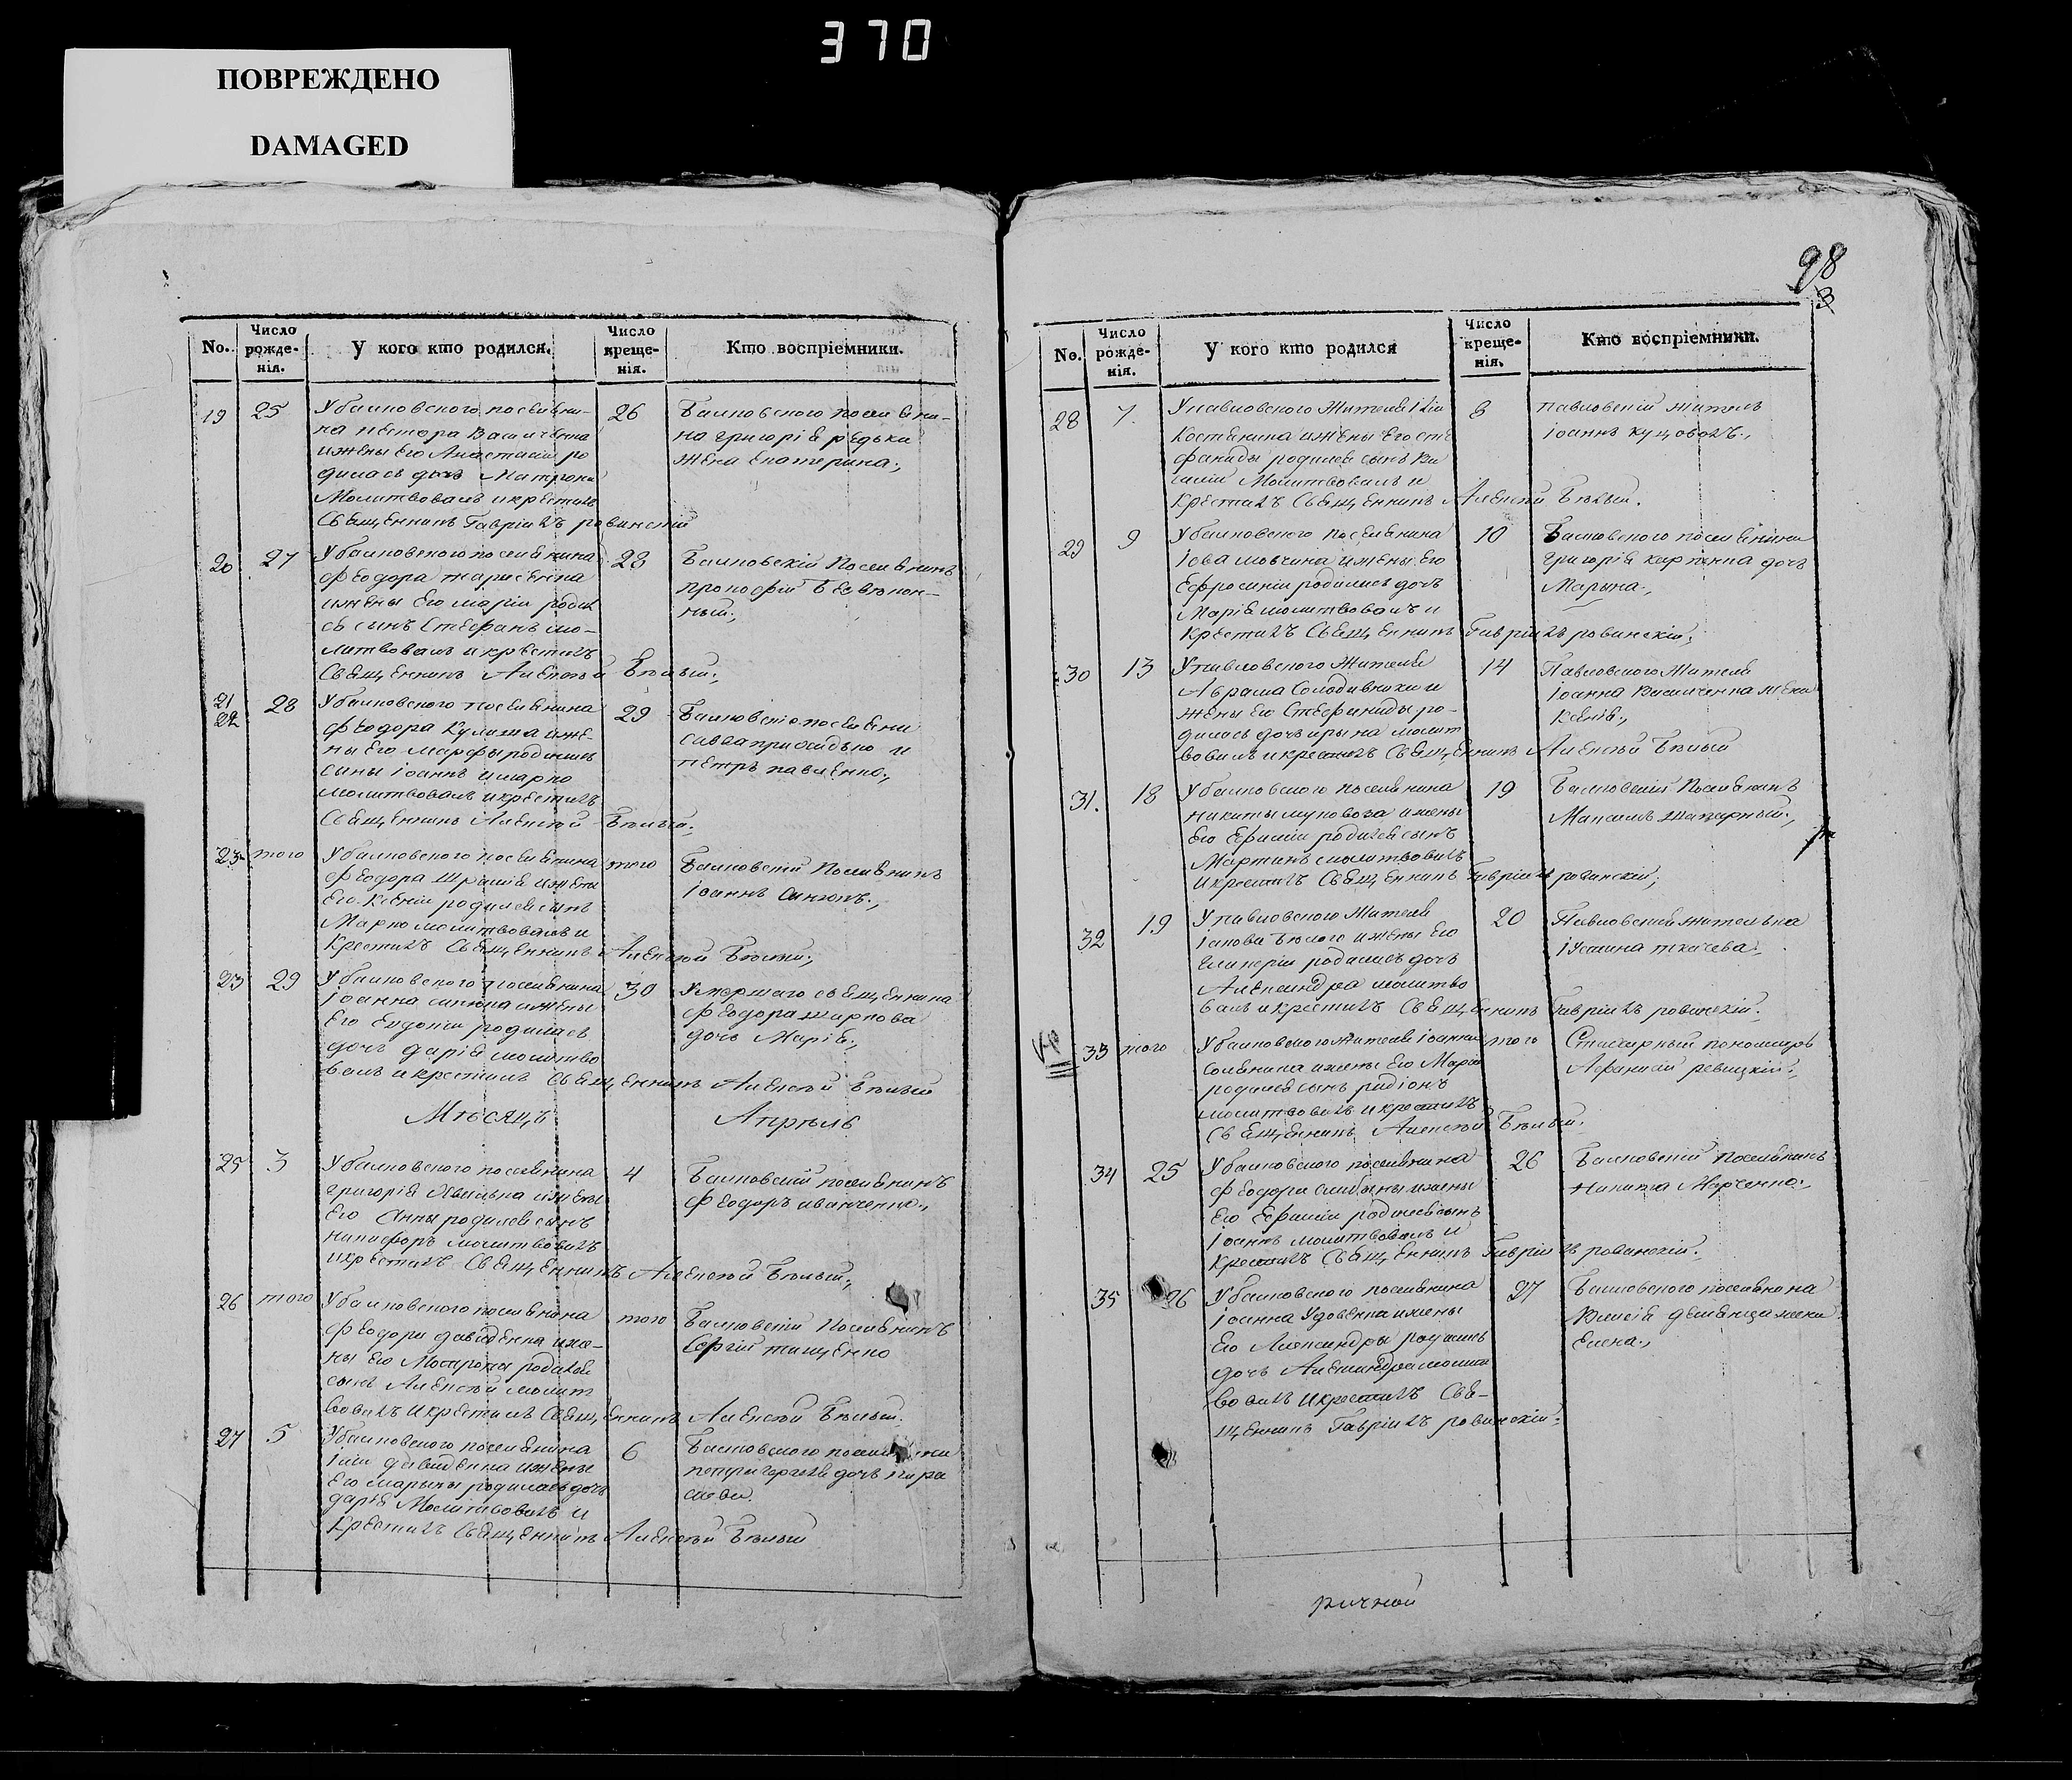 370
ПОВРЕЖДЕНО
DAMAGED
No.
Число рожденія.
У кого кто родился.
Число крещенія.
Кто воспріемники.
19
25
Убалковского поселяни-
на нестора Василенка
ижены его Анастасіи ро
дилась дочь Матрона
Молитвовалъ икрестилъ
Священникъ Гавріилъ ровинскій
26
Балковского поселяни-
на григорія редьки
жена екатерина.,
20
27
Убалковского поселянина
феодора
ижены его маріи роди
ся сынъ Стефанъ мо-
литвовалъ икрестилъ
Священникъ Алексѣй Бѣлый.,
28
Балковскій Поселянинъ
прокофій
ный.,
21
22
28
Убалковского поселянина
феодора Кулиша иже-
ны его марфы родились
сыны іоаннъ имарко
молитвовалъ икрестилъ
Священникъ Алексѣй Бѣлый.
29
савва и
петръ павленко.,
23
того
Убалковского поселянина
феодора ижены
его Ксеніи родился сынъ
Марко молитвовалъ и
Крестилъ Священникъ Алексѣй Бѣлый.,
того
Балковскій Поселянинъ
іоаннъ
23
29
Убалковского поселянина
іоанна ижены
его Евдокіи родилась
дочь дарія молитво
валъ икрестилъ Священникъ Алексѣй Бѣлый
30
Умершаго священника
феодора
дочь Марія.,
Мѣсяцъ
Апрѣль
25
3
Убалковского поселянина
григорія ижены
его Анны родился сынъ
никифоръ молитвовалъ
икрестилъ Священникъ Алексѣй Бѣлый.,
4
Балковскій поселянинъ
феодоръ иванченко.,
26
того
Убалковского поселянина
феодора давиденка иже-
ны его Матроны родился
сынъ Алексѣй молит
вовалъ икрестилъ Священникъ Алексѣй Бѣлый.
того
Балковскій Поселянинъ
Сергій тищенко
27
5
Убалковского поселянина
іліи ижены
его марыны родилась дочь
дарія Молитвовалъ и
Крестилъ Священникъ Алексѣй Бѣлый
6
Балковского
дочь пара
98
3
No.
Число рожденія.
У кого кто родился
Число крещенія.
Кто воспріемники.
28
7.
Упавловского Жителя іліи
Костенина ижены его сте
фаниды родился сынъ Ва
силій Молитвовалъ и
Крестилъ Священникъ Алексѣй Бѣлый.
8
павловскій житель
іоаннъ
29
9
Убалковского поселянина
іова мовчина ижены его
Ефросиніи родилась дочь
Марія молитвовалъ и
крестилъ Священникъ Гавріилъ ровинскій.
10
Балковского поселянина
григорія дочь
Марына.,
30
13
Упавловского Жителя
Аврама Солодивника и
жены его Стефаниды ро-
дилась дочь ирына молит
вовалъ икрестилъ Священникъ Алексѣй Бѣлый
14
Павловского Жителя
іоанна Василенка жена
Ксенія.,
31.
18
Убалковского поселянина
никиты муковоза ижены
его Ефиміи родился сынъ
Мартинъ молитвовалъ
икрестилъ Священникъ Гавріилъ ровинскій,
19
Балковскій Поселянинъ
Максимъ
32
19
Упавловского Жителя
іакова Бѣлого ижены его
Гликеріи родилась дочь
Александра молитво
валъ икрестилъ Священникъ Гавріилъ ровинскій.
20
Павловская жителька
іустина ткачева.,
33
того
Убалковского жителя іоанна
ижены его Маріи
родился сынъ радіонъ
молитвовалъ икрестилъ
Священникъ Алексѣй Бѣлый.
того
пономарь
Афанасій ревицкій.,
34
25
Убалковского поселянина
феодора ижены
его Ефиміи родился сынъ
іоаннъ молитвовалъ и
Крестилъ Священникъ Гавріилъ ровинскій.
26
Балковскій Поселянинъ
Никита Марченко.,
35
26
Убалковского поселянина
іоанна Удовенка ижены
его Александры родилась
дочь Александра молит
вовалъ икрестилъ Свя-
щенникъ Гавріилъ ровинскій.
27
Балковского поселянина
жена
Елена.,